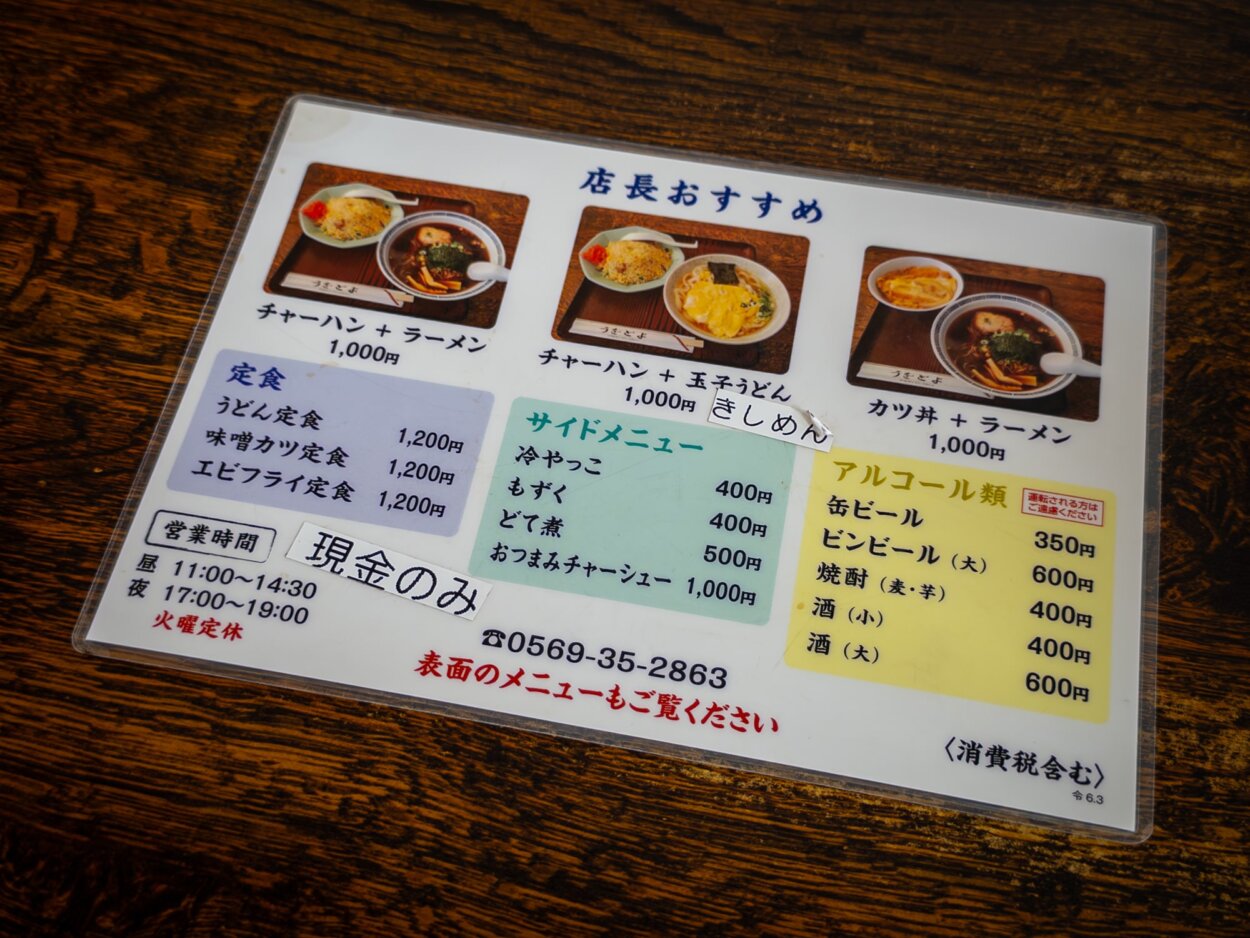 店長おすすめ
うをとよ
チャーハン + ラーメン
1,000円
うをとよ
チャーハン + 玉子うどん
きしめん
1,000円
うをとよ
カツ丼 + ラーメン
1,000円
定食
うどん定食 1,200円
味噌カツ定食 1,200円
エビフライ定食 1,200円
サイドメニュー
冷やっこ 400円
もずく 400円
どて煮 500円
おつまみチャーシュー 1,000円
アルコール類
運転される方は
ご遠慮ください
缶ビール 350円
ビンビール（大） 600円
焼酎（麦・芋） 400円
酒（小） 400円
酒（大） 600円
営業時間
昼 11:00～14:30
夜 17:00～19:00
火曜定休
現金のみ
☎0569-35-2863
表面のメニューもご覧ください
〈消費税含む〉
令6.3